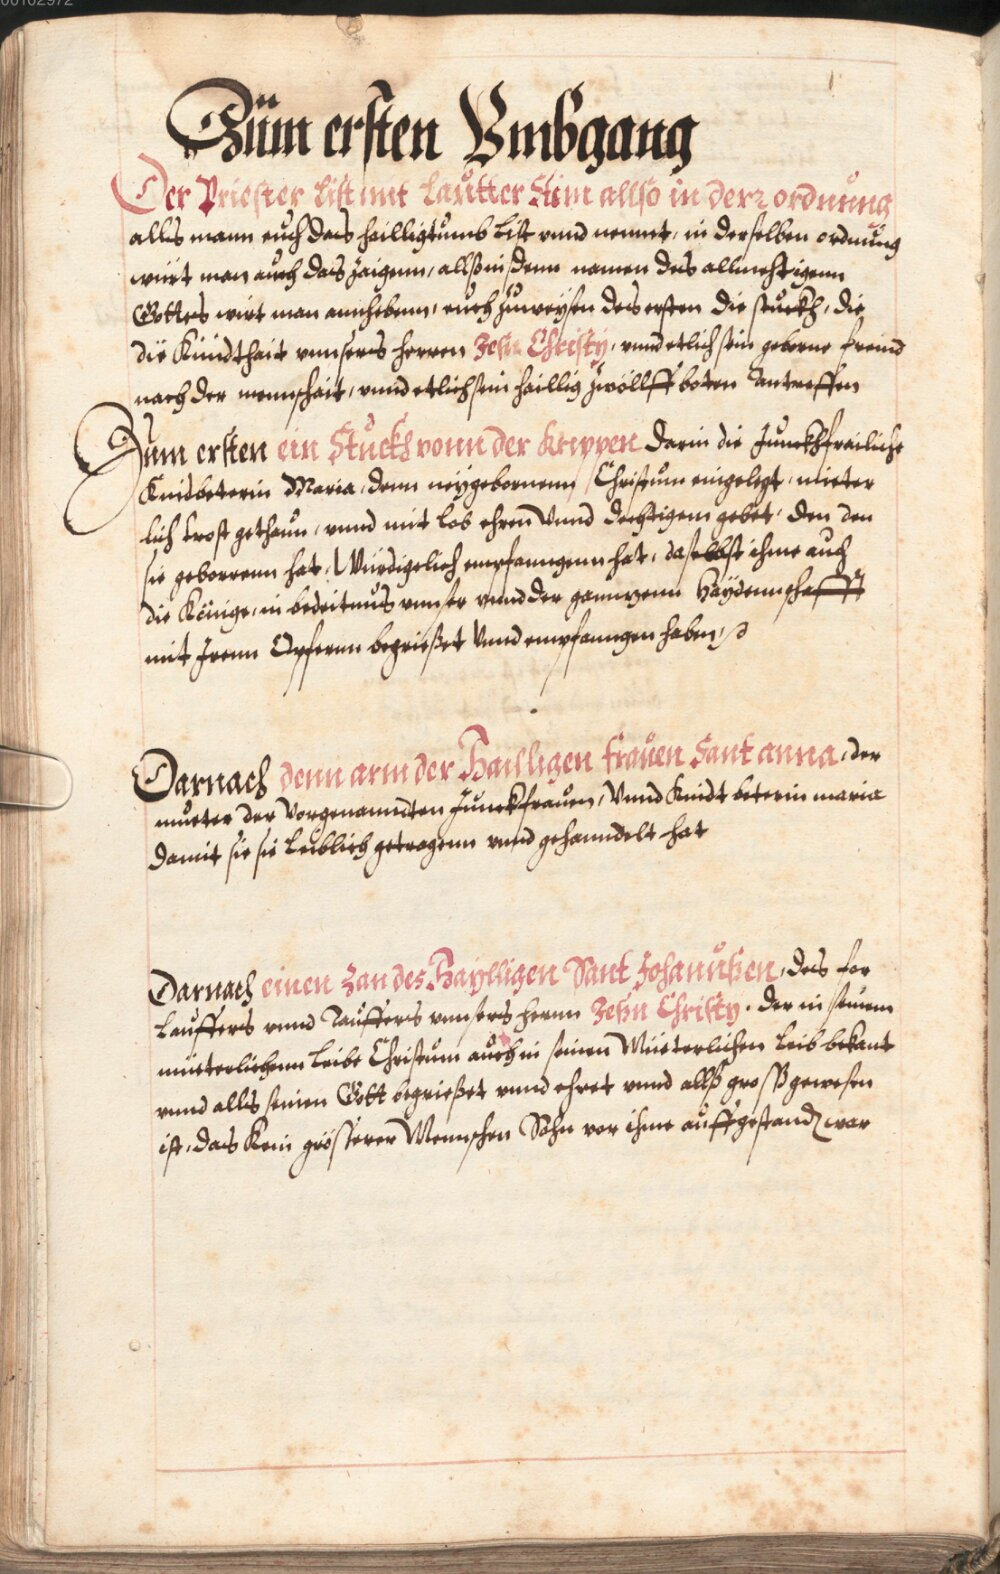 00102972
Züm ersten Vmbgang
Der Priester List mit Lautter Stim allso in der ordnung
alls mann euch das hailligtumb list vnnd nennet, in derselben ordnung
wirt man auch das zaigenn, allß in dem namen des allmechtigenn
Gottes wirt man annhebenn, euch zuweysen des ersten die stuckh, die
die Kindthait vnnsers herren Jesu Christy, vnnd etlich sein geborne freind
nach der mennschait, vnnd etlich sein haillig zwölff boten Antreffen
Zum ersten ein Stuckh vonn der Krippen darin die Junckhfrailiche
Kindbeterin Maria, denn neygebornenn Christum eingelegt, mieter
lich trost gethaun, vnnd mit lob ehren Vnnd dechtigem gebet, den den
sie geborrenn hat, Wirdigelich empfanngenn hat, daselbst ihme auch
die Könige, in bedeitnus vnnser vnnd der ganntzenn Haydennschafft
mit Irenn Opfernn begriesset Vnnd empfanngen haben,
Darnach denn arm der Hailligen frauen Sant anna, der
mueter der Vorgenanndten Junckfrauen, Vnnd Kindt beterin maria
damit sie sie Leiblich getragenn vnnd gehanndelt hat
Darnach einen Zan des Haylligen Sant Johannßen, des for
Lauffers vnnd Tauffers vnnsers herrn Jehsu Christy. der in seinem
mieterlichenn leibe Christum auch in seinen Mieterlichen Leib bekant
vnnd alls seinen Gott begriesset vnnd ehret vnnd allß groß gewesen
ist, das Kein grösserer Mennschen Sohn vor ihme auffgestand war